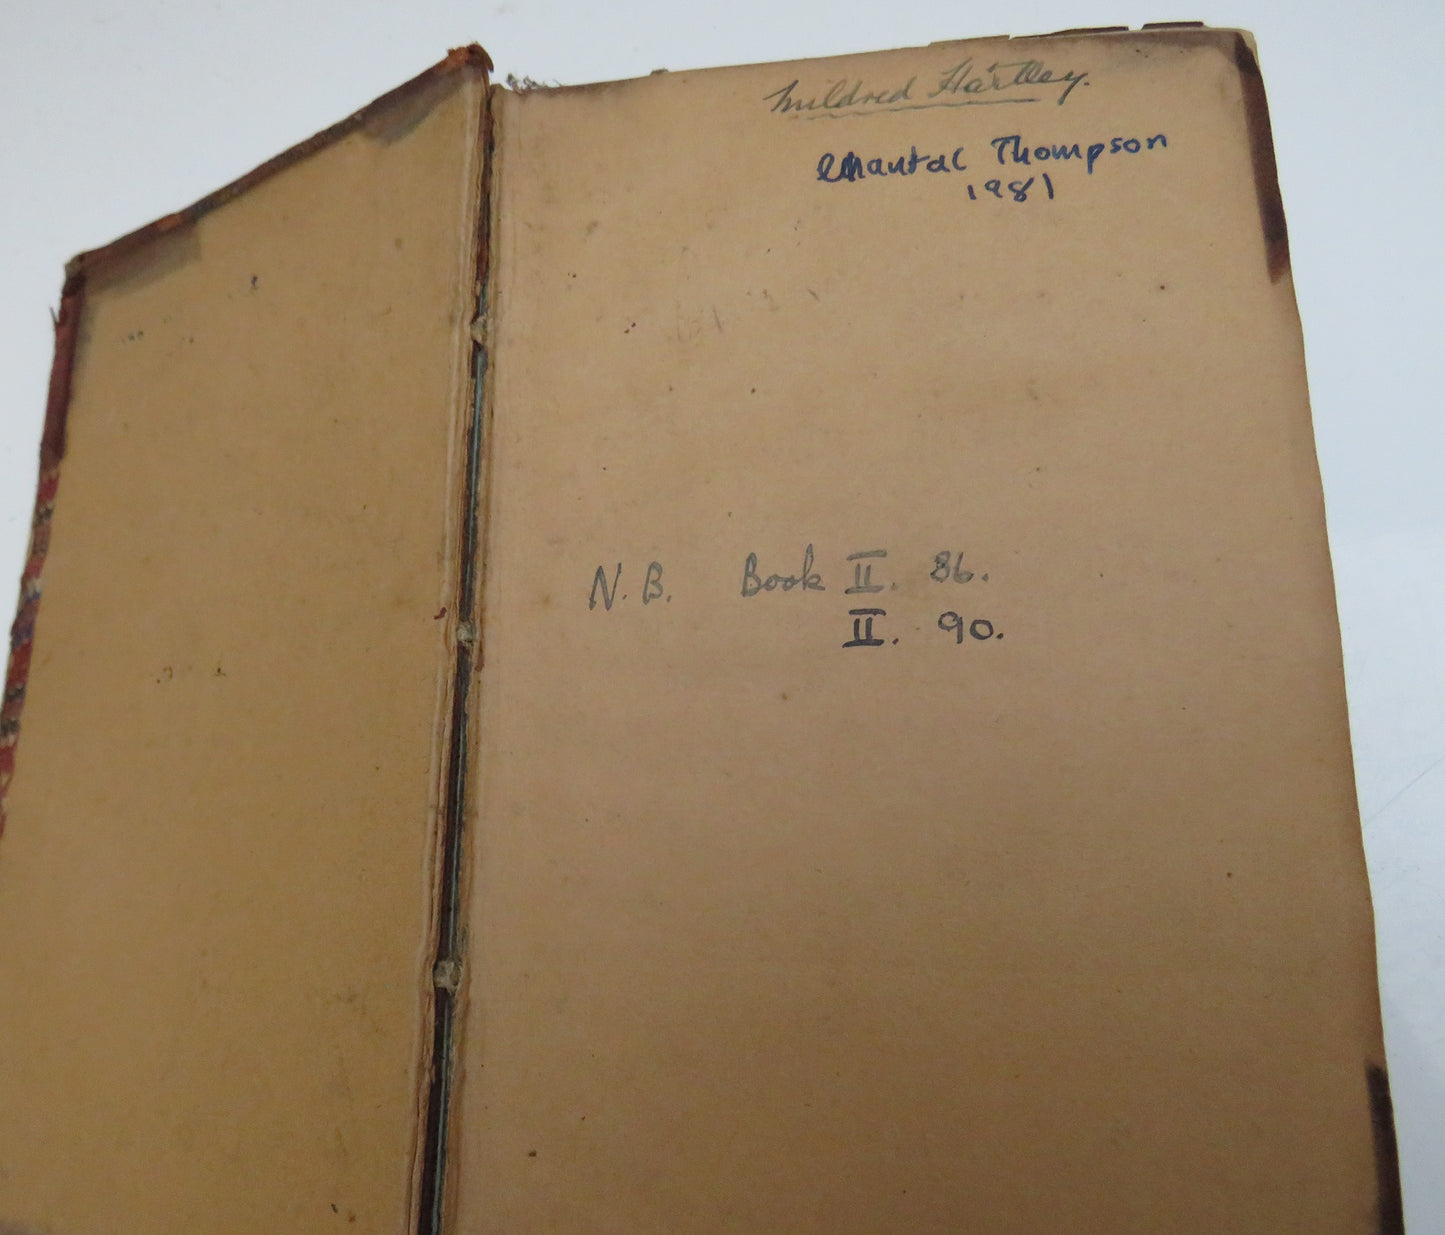 Mildred Hartley.
Chantal Thompson
1981
N.B. Book II. 86.
II. 90.